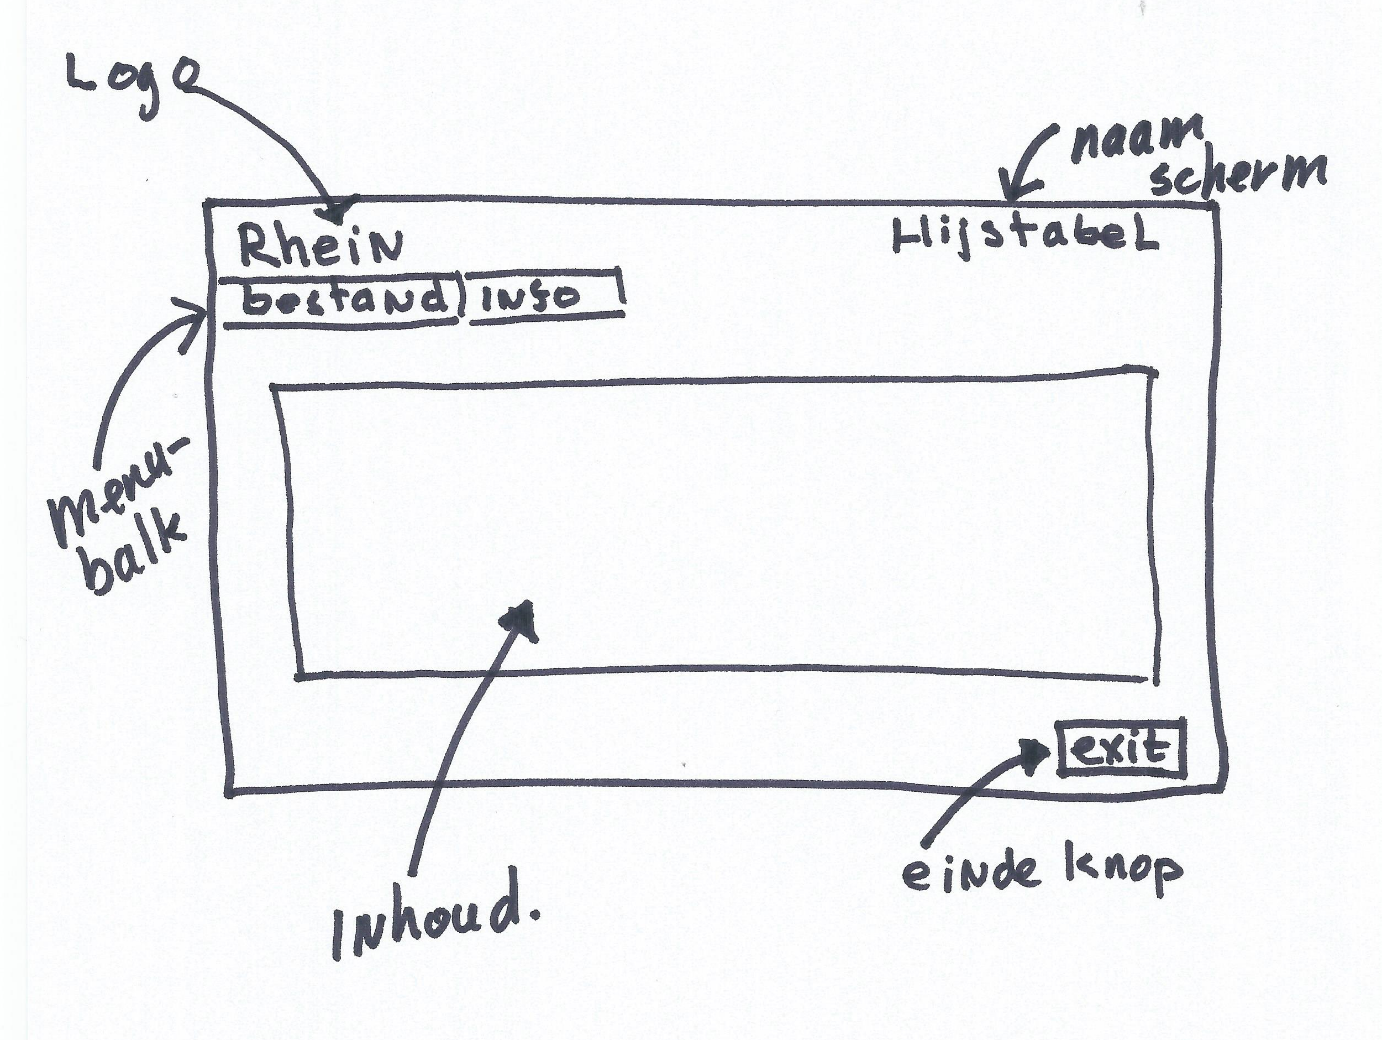 Logo
naam
scherm
Rhein
Hijstabel
bestand
info
menu-
balk
exit
einde knop
Inhoud.